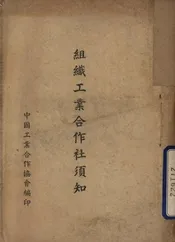 組織工業合作社須知
中國工業合作協會編印